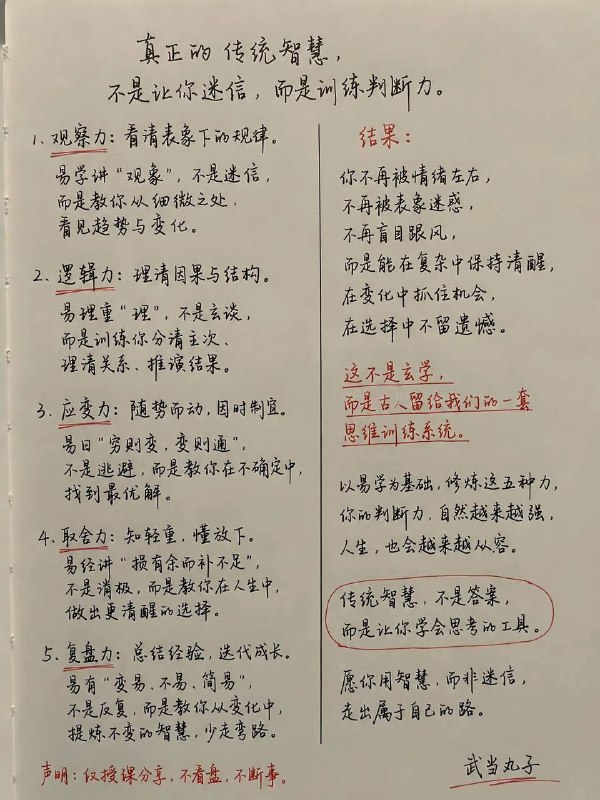 真正的传统智慧，
不是让你迷信，而是训练判断力。
1、观察力：看清表象下的规律。
易学讲“观象”，不是迷信，
而是教你从细微之处，
看见趋势与变化。
2、逻辑力：理清因果与结构。
易理重“理”，不是玄谈，
而是训练你分清主次、
理清关系、推演结果。
3、应变力：随势而动，因时制宜。
易曰“穷则变，变则通”，
不是逃避，而是教你在不确定中，
找到最优解。
4、取舍力：知轻重，懂放下。
易经讲“损有余而补不足”，
不是消极，而是教你在人生中，
做出更清醒的选择。
5、复盘力：总结经验，迭代成长。
易有“变易、不易、简易”，
不是反复，而是教你从变化中，
提炼不变的智慧，少走弯路。
声明：仅授课分享，不看盘，不断事。
结果：
你不再被情绪左右，
不再被表象迷惑，
不再盲目跟风，
而是能在复杂中保持清醒，
在变化中抓住机会，
在选择中不留遗憾。
这不是玄学，
而是古人留给我们的一套
思维训练系统。
以易学为基础，修炼这五种力，
你的判断力，自然越来越强，
人生，也会越来越从容。
传统智慧，不是答案，
而是让你学会思考的工具。
愿你用智慧，而非迷信，
走出属于自己的路。
武当丸子